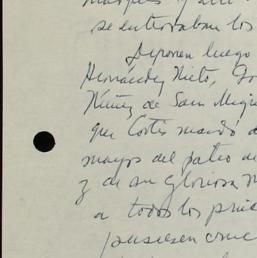 marqués y
se enterraban los
Deponen luego
Hernández Nieto,
Núñez de San Migue
que Cortés mandó
mayor del patio de
y de su gloriosa M
a todos los prin
pusiesen cruc